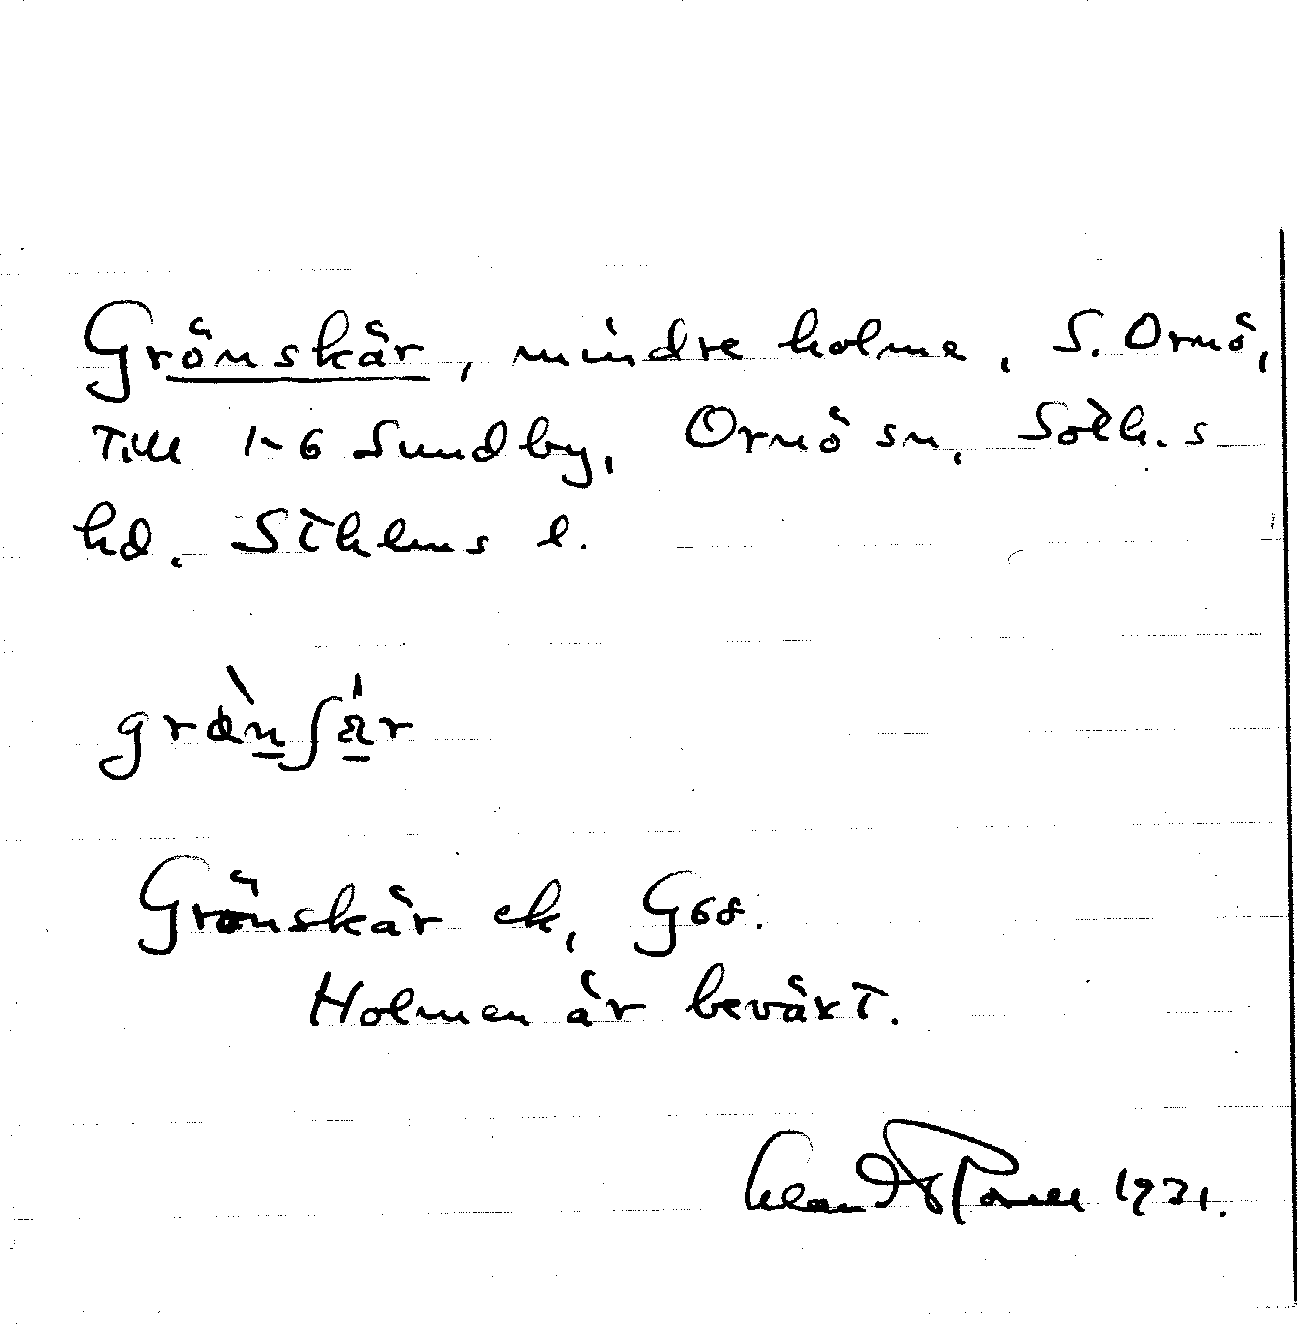 Grönskär, mindre holme, S. Ornö,
till 1-6 Sundby, Ornö sn, Soth. s
hd. Sthlms l.
Grönskär ek, G68.
Holmen är beväxt.
1931.